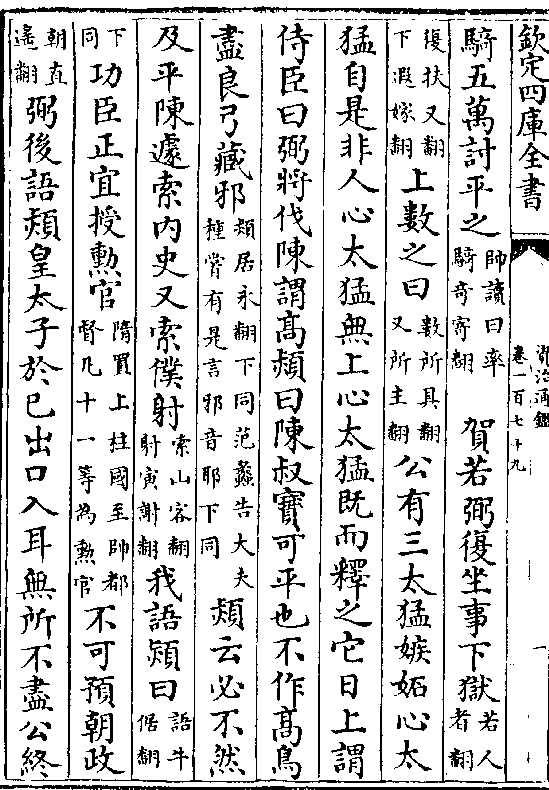 欽定四庫全書
資治通鑑
卷一百七十九
一
騎五萬討平之帥讀曰率騎奇寄翻　賀若弼復坐事下獄若人者翻
復扶又翻下遐嫁翻上數之曰數所具翻又所主翻公有三太猛嫉妬心太
猛自是非人心太猛無上心太猛既而釋之它日上謂
侍臣曰弼將伐陳謂高熲曰陳叔寶可平也不作高鳥
盡良弓藏邪熲居永翻下同范蠡告大夫種嘗有是言邪音耶下同熲云必不然
及平陳遽索内史又索僕射索山客翻射寅謝翻我語熲曰語牛倨翻
下同功臣正宜授勲官隋置上柱國至帥都督凡十一等為勲官不可預朝政
朝直遙翻弼後語熲皇太子於已出口入耳無所不盡公終